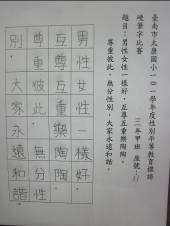 臺南市太康國小一0一學年度性別平等教育標語
硬筆字比賽
三年甲班 座號:11
題目:男性女性一樣好,互尊互重樂陶陶。
尊重彼此,無分性別,大家永遠和諧。
男性女性一樣好,
互尊互重樂陶陶。
尊重彼此,無分性
別,大家永遠和諧